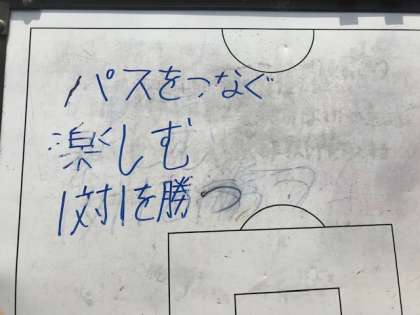 パスをつなぐ
楽しむ
1対1を勝つ